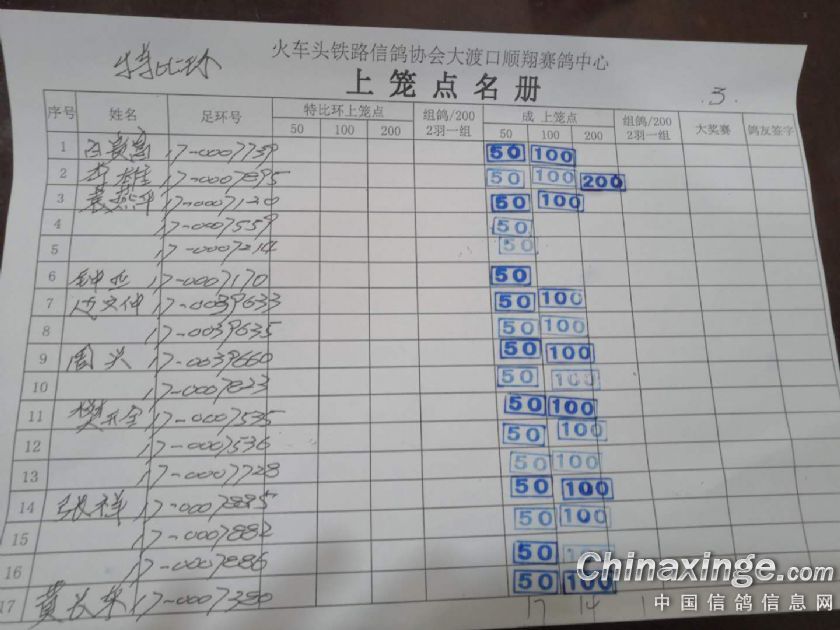 特比环
火车头铁路信鸽协会大渡口顺翔赛鸽中心
上笼点名册
3.
序号 姓名 足环号 特比环上笼点 组鸽/200 2羽一组 成 上笼点 组鸽/200 2羽一组 大奖赛 鸽友签字
50 100 200 50 100 200
1 17-0007739 50 100
2 李雄 17-0007895 50 100 200
3 袁燕华 17-0007120 50 100
4 17-0007559 50
5 17-0007214 50
6 钟 17-0007170 50
7 17-0039633 50 100
8 17-0039635 50 100
9 周兴 17-0039660 50 100
10 17-0007823 50 100
11 樊开全 17-0007535 50 100
12 17-0007536 50 100
13 17-0007728 50 100
14 张祥 17-0007885 50 100
15 17-0007882 50 100
16 17-0007886 50
17 黄长东 17-0007380 50 100
17 14
Chinaxinge.com
中国信鸽信息网